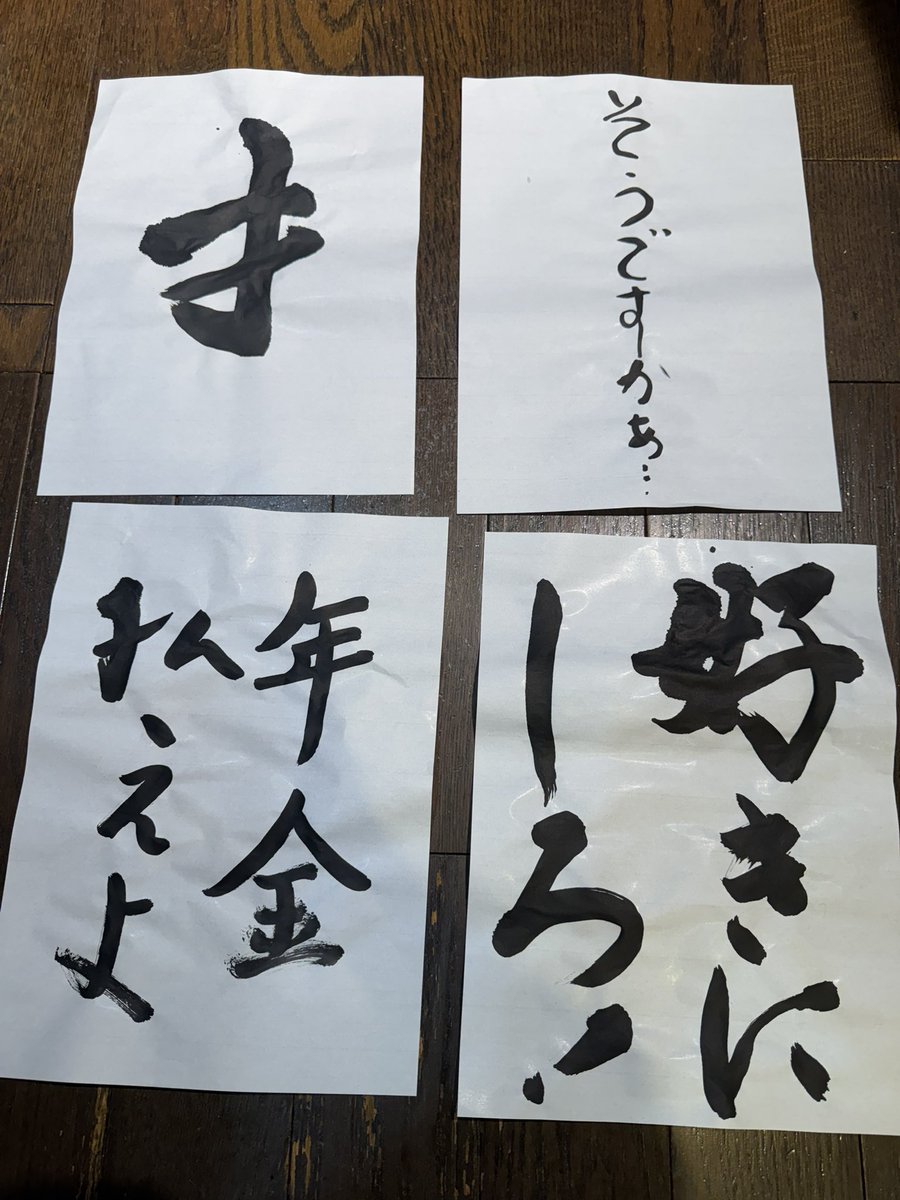 そうですかぁ…
好きに
しろ!
年金
払えよ